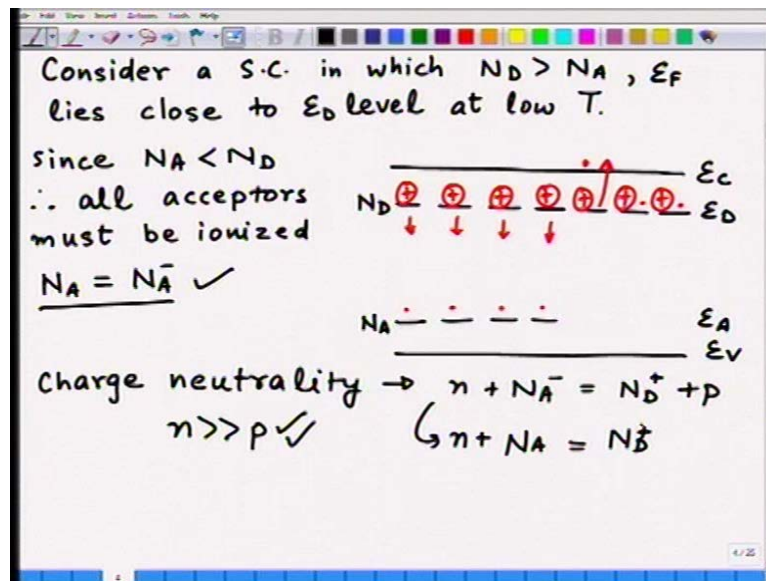 Consider a S.C. in which N_D > N_A, ε_F
lies close to ε_D level at low T.
since N_A < N_D
∴ all acceptors
must be ionized
N_A = N_A^- ✓
ε_C
N_D ε_D
N_A ε_A
ε_V
Charge neutrality → n + N_A^- = N_D^+ + p
n >> p ✓✓
↳ n + N_A = N_D^+
4/25